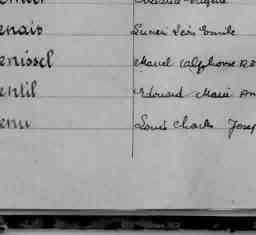 enais Lucien Léon Emile
enissel Marcel Alphonse
entil Edouard Marie An
enu Louis Charles Josep